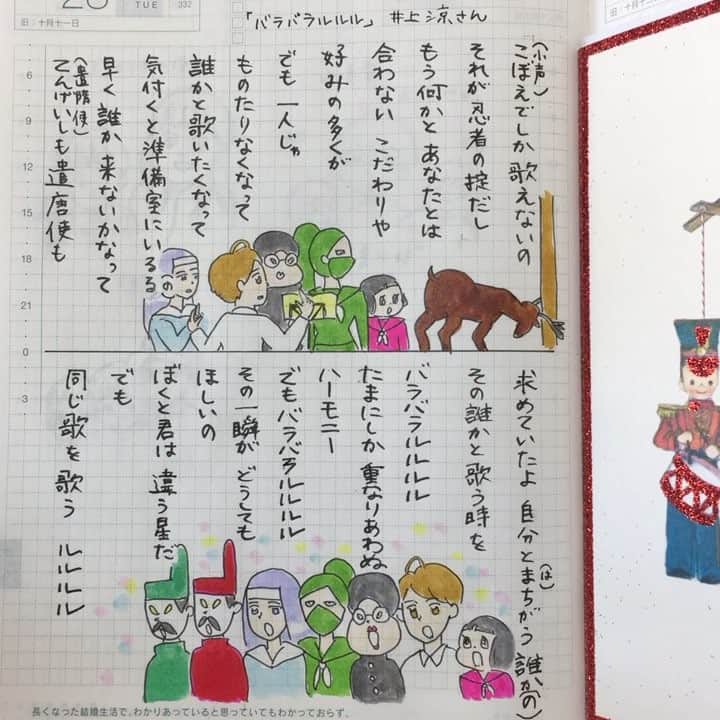 旧:十月十一日
TUE
332
「バラバラルルル」 井上涼さん
(小声)
こごえでしか 歌えないの
それが忍者の掟だし
もう何かと あなたとは
合わない こだわりや
好みの多くが
でも 一人じゃ
ものたりなくなって
誰かと歌いたくなって
気付くと準備室にいるる
早く 誰か 来ないかなって
(遣隋使)
てんげいしも 遣唐使も
6
9
12
15
18
21
0
3
求めていたよ 自分とまちがう 誰か(の)
(は)
その誰かと 歌う時を
バラバラルルルル
たまにしか 重なりあわぬ
ハーモニー
でもバラバラルルルル
その一瞬が どうしても
ほしいの
ぼくと君は 違う星だ
でも
同じ歌を 歌う ルルルル
長くなった結婚生活で、わかりあっていると思っていてもわかっておらず、
旧:十月十二